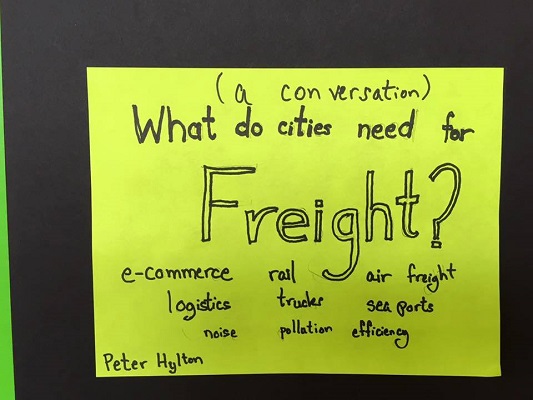 (a conversation)
What do cities need for
Freight?
e-commerce rail air freight
logistics trucks sea ports
noise pollution efficiency
Peter Hylton